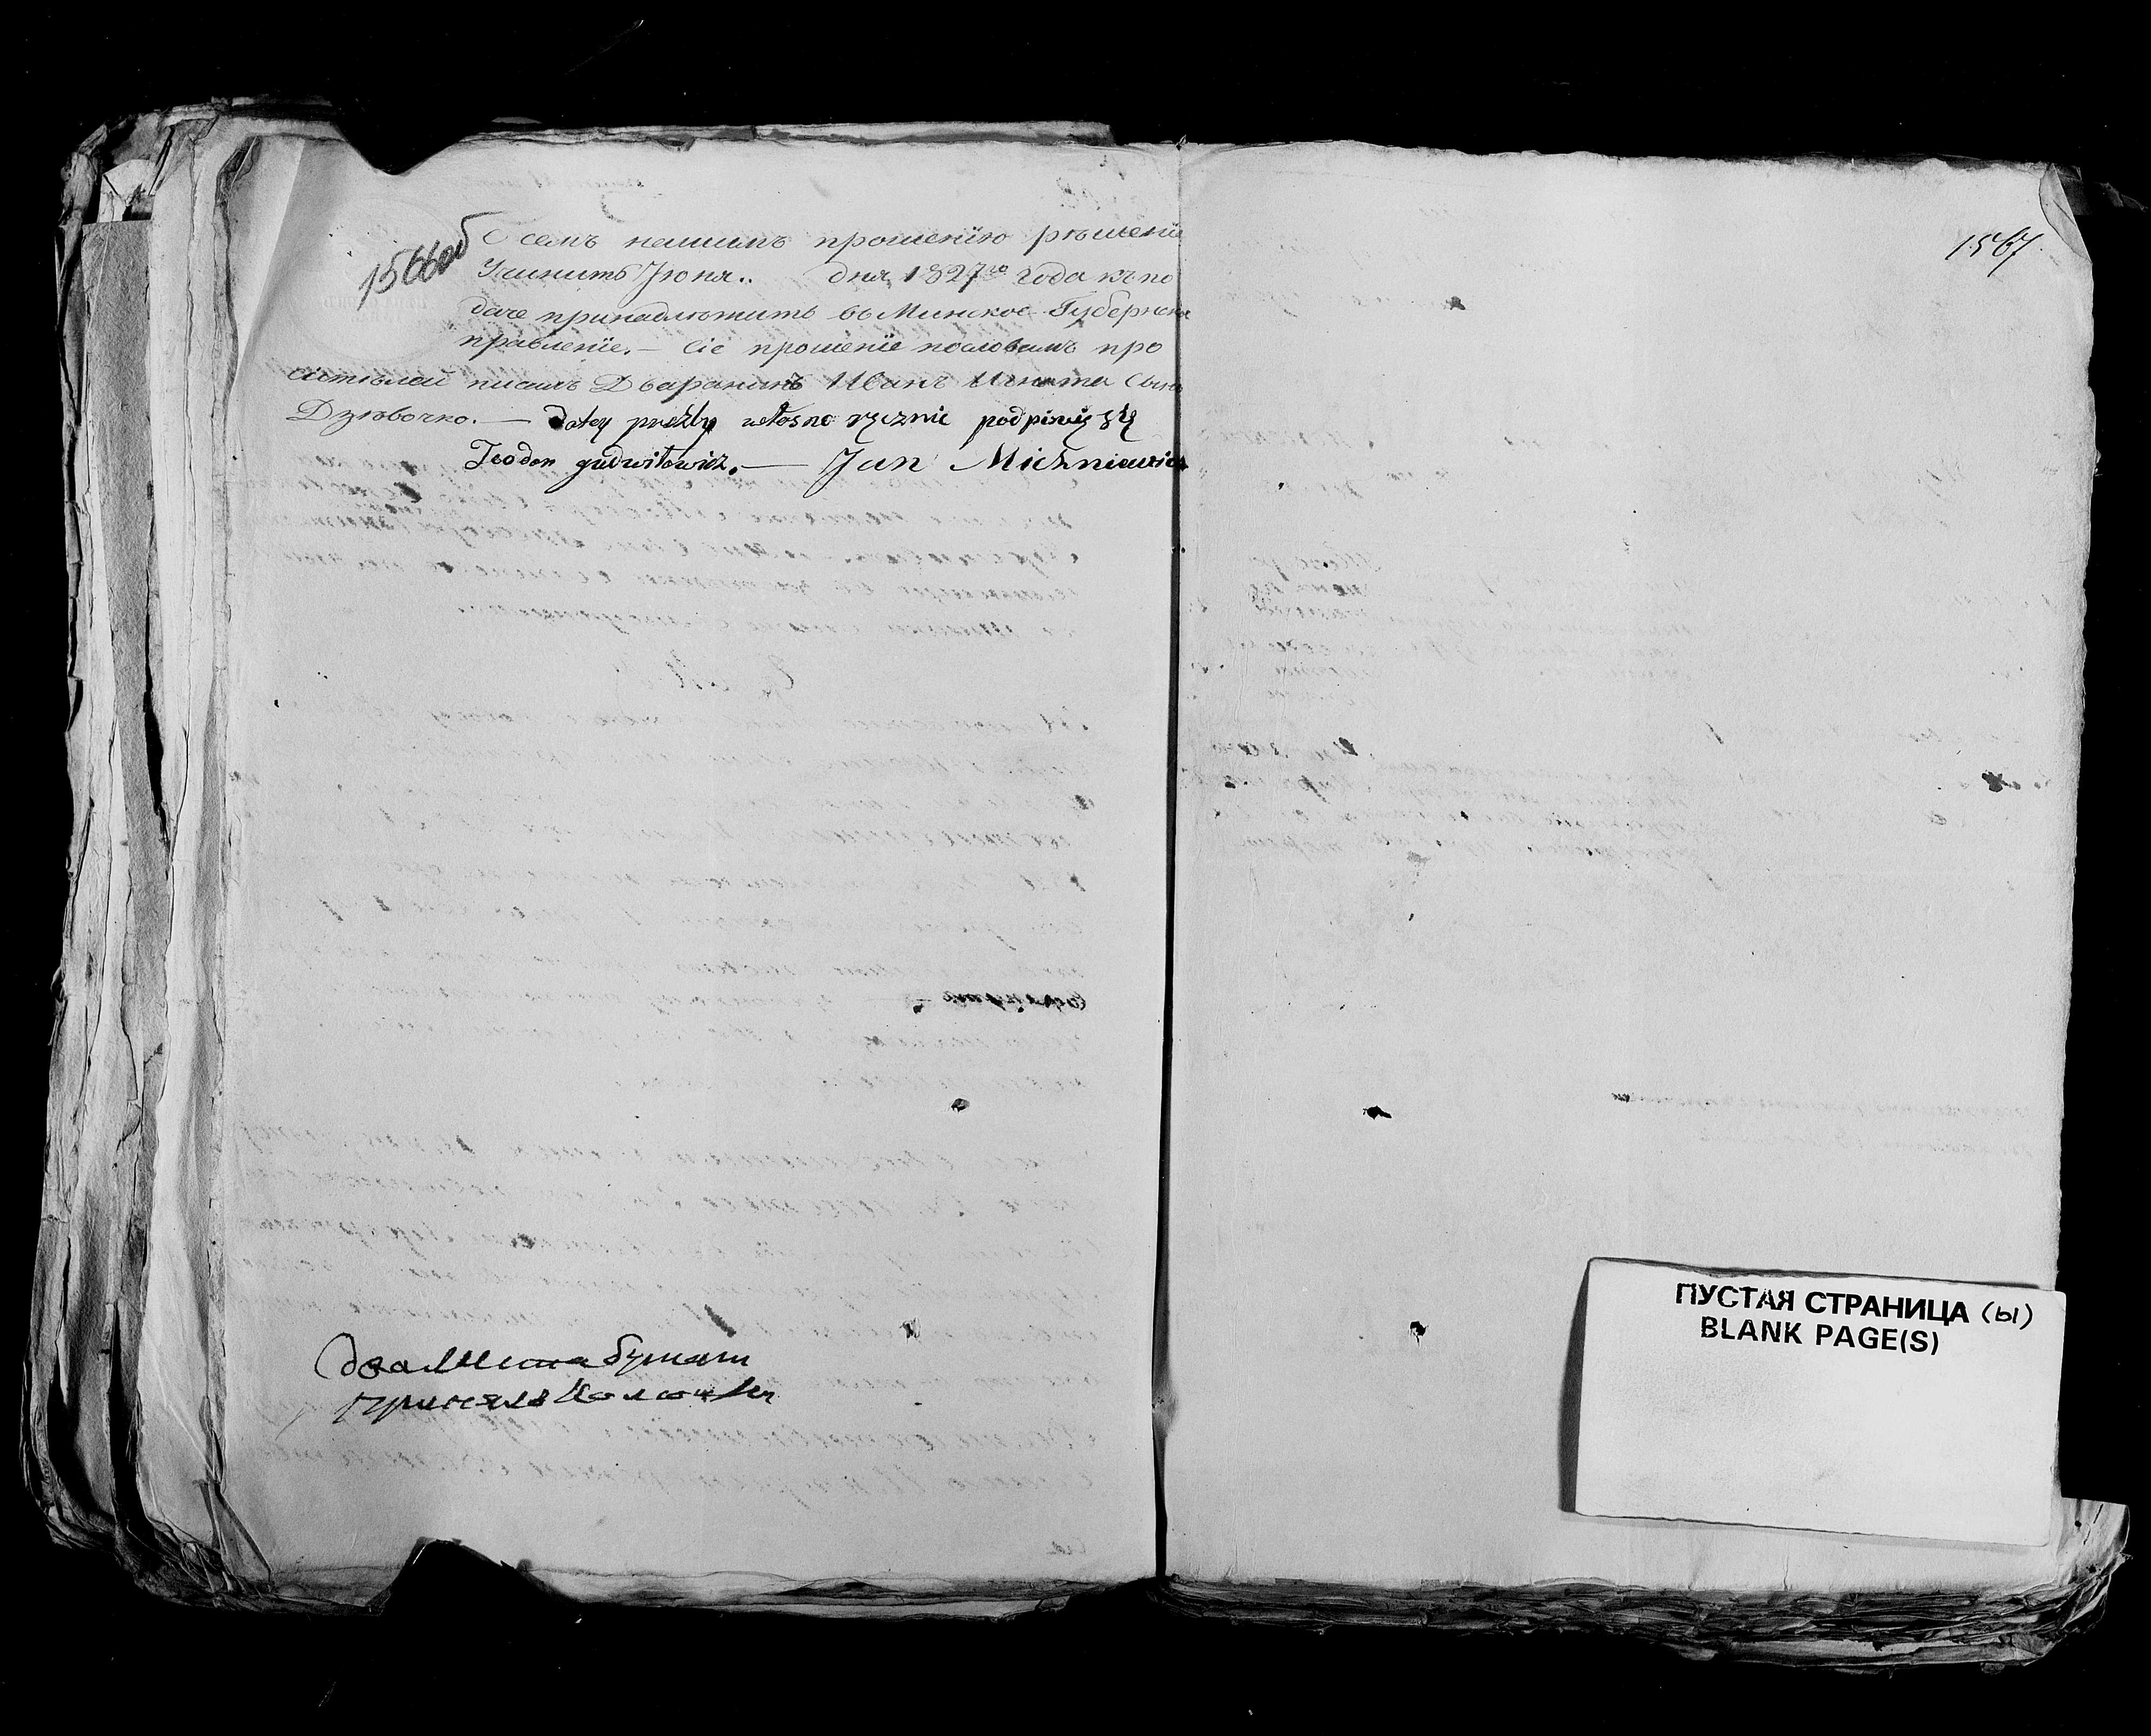 1566об
О семъ нашимъ прошенїю рѣшенїе
Учинить Іюня.. дня, 1827го года къ по
даче принадлѣжитъ въ Минское Губернское
правленїе.— Сїе прошенїе пословамъ про
сителей писалъ Дваранинъ Иванъ Игната Сынъ
Дзѣвочко.— do tey proźby własno ręcznie podpisuię się
Teodor
Jan Michniewicz
два листа бумаги
принялъ
1567.
ПУСТАЯ СТРАНИЦА (ы)
BLANK PAGE(S)